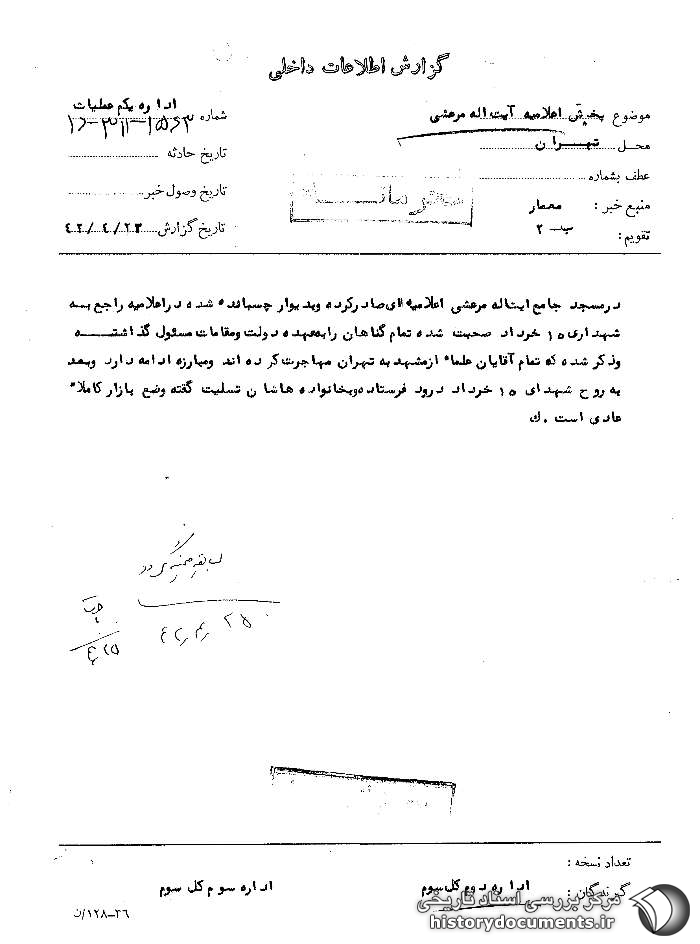 گزارش اطلاعات داخلی
موضوع پخش اعلامیه آیت اله مرعشی
اداره یکم عملیات
محل تهران
شماره
عطف بشماره
تاریخ حادثه
منبع خبر : معمار
تاریخ وصول خبر
تقویم : ب - ۲
تاریخ گزارش ۴۲/۴/۲۳
محرمانه
در مسجد جامع ایت اله مرعشی اعلامیه ای صادر کرده و بدیوار چسبانده شده در اعلامیه راجع به
شهدای ۱۵ خرداد صحبت شده تمام گناهان را بعهده دولت و مقامات مسئول گذاشته
و ذکر شده که تمام آقایان علماء از مشهد به تهران مهاجرت کرده اند و مبارزه ادامه دارد و بعد
به روح شهدای ۱۵ خرداد درود فرستاده و بخانواده هاشان تسلیت گفته وضع بازار کاملاً
عادی است . ك
تعداد نسخه :
گیرندگان : اداره دوم کل سوم اداره سوم کل سوم
۳۶-۱۲۸/ن
مرکز بررسی اسناد تاریخی
historydocuments.ir